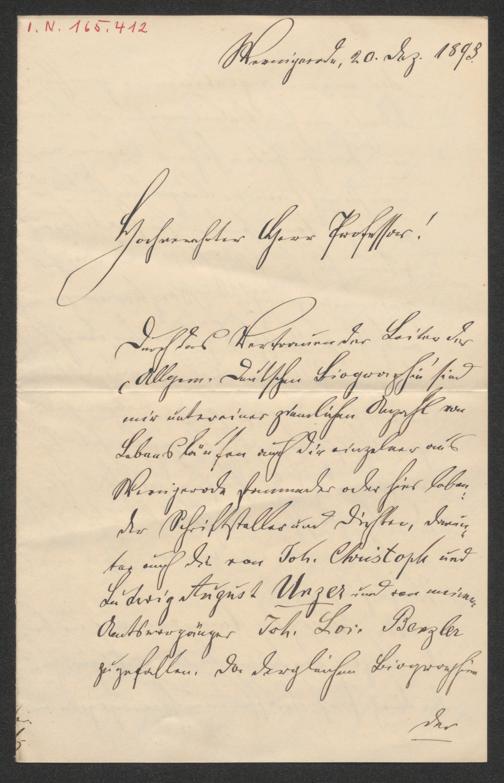 I. N. 165.412
Wernigerode, 20. Dez. 1893.
Hochverehrter Herr Professor!
Durch das Vertrauen der Leiter der
„Allgem. Deutschen Biographie“ sind
mir unter einer ziemlichen Anzahl von
Lebensläufen auch die einzelner aus
Wernigerode stammender oder hier leben-
der Schriftsteller und Dichter, darun-
ter auch die von Joh. Christoph und
Ludwig August Unzer und von meinem
Amtsvorgänger Joh. Lor. Benzler
zugefallen. Da dergleichen Biographien
der